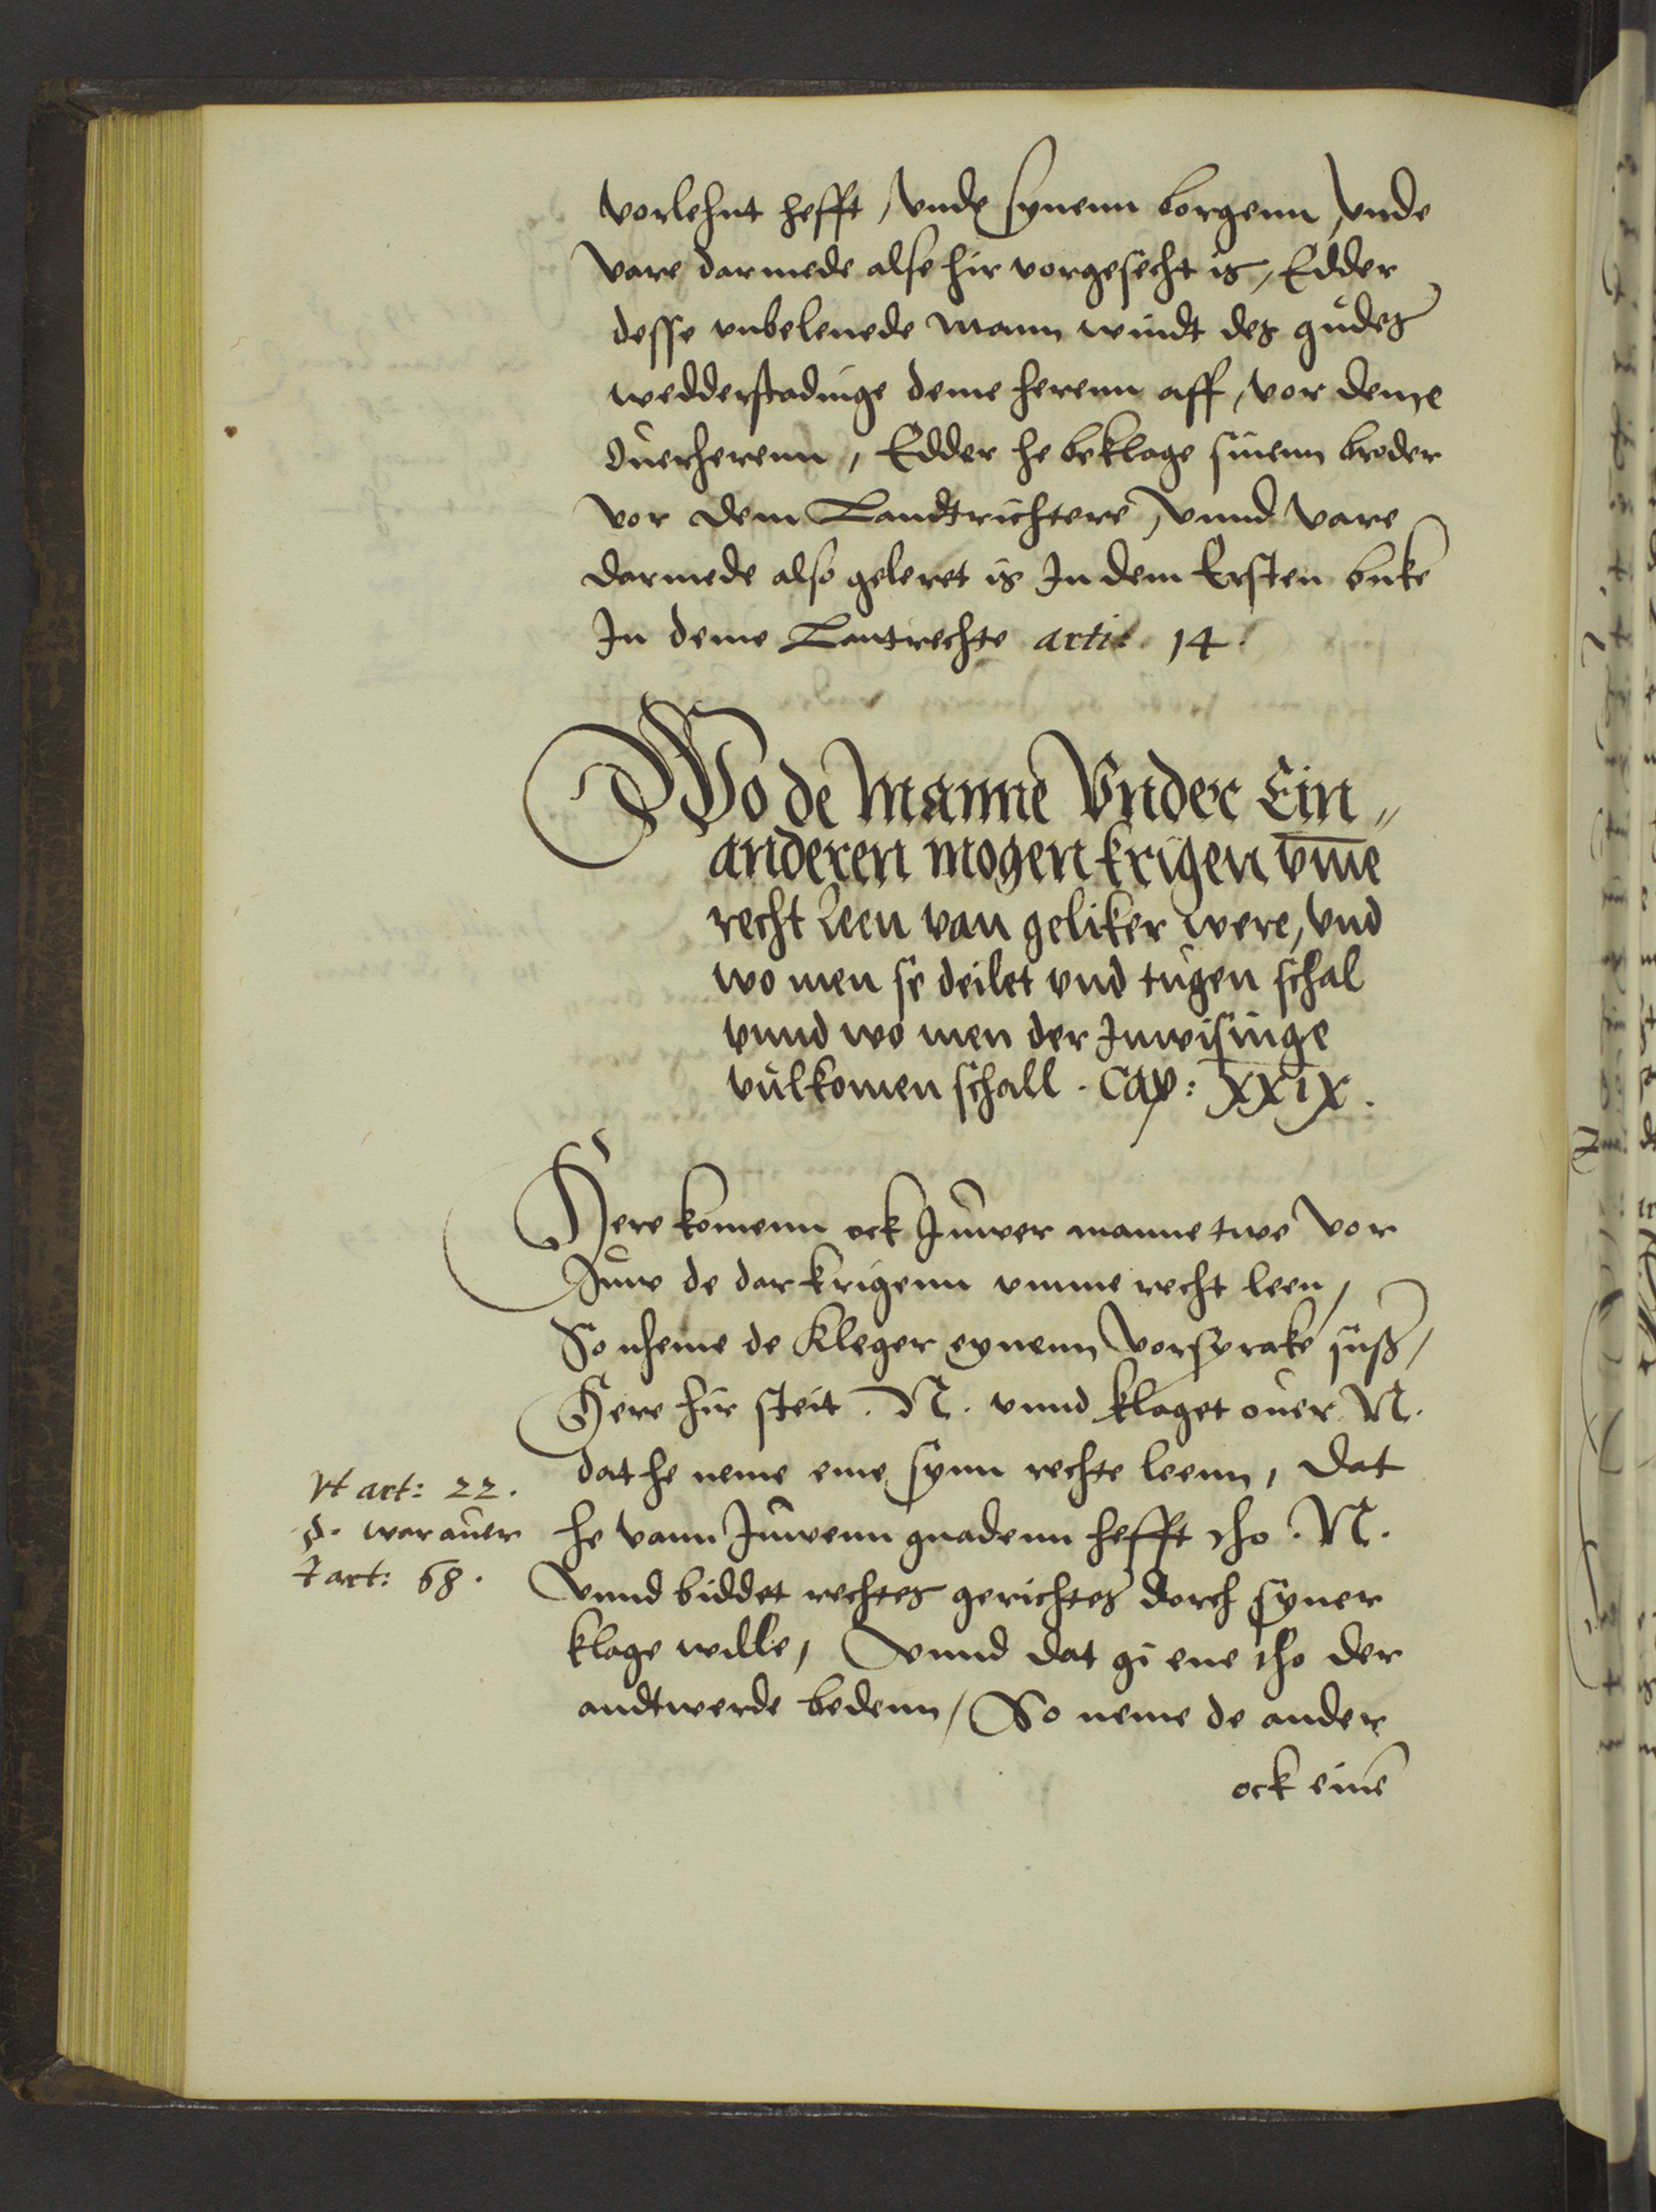 vorlehnt hefft, vnde synenn borgenn, vnde
vare darmede alse hir vorgesecht is, Edder
desse vnbelenede Mann windt des gudes
wedderstadinge deme herenn aff, vor deme
Ouerherenn, Edder he beklage sinenn broder
vor dem Landtrichtere, vnnd vare
darmede also geleret is In dem Ersten buke
In deme Lantrechte arti: 14.
Wo de Manne Vnder Ein„
anderen mogen krigen vm̄e
recht Leen van geliker were, vnd
wo men se deilet vnd tugen schal
vnnd wo men der Inwisinge
vulkomen schall. Cap: XXIX.
Here komenn ock Juwer manne twe vor
Juw de dar krigenn vmme recht leen,
So nheme de Kleger eynenn Vorsprake suß,
Here hir steit . N. vnnd klaget ouer N.
dat he neme eme synn rechte leenn, dat
he vann Juwenn gnadenn hefft tho . N.
Vnnd biddet rechtes gerichtes dorch syner
klage wille, Vnnd dat gi ene tho der
andtwerde bedenn, So neme de ander
ock eine
art: 22.
d. war auer
art: 68.